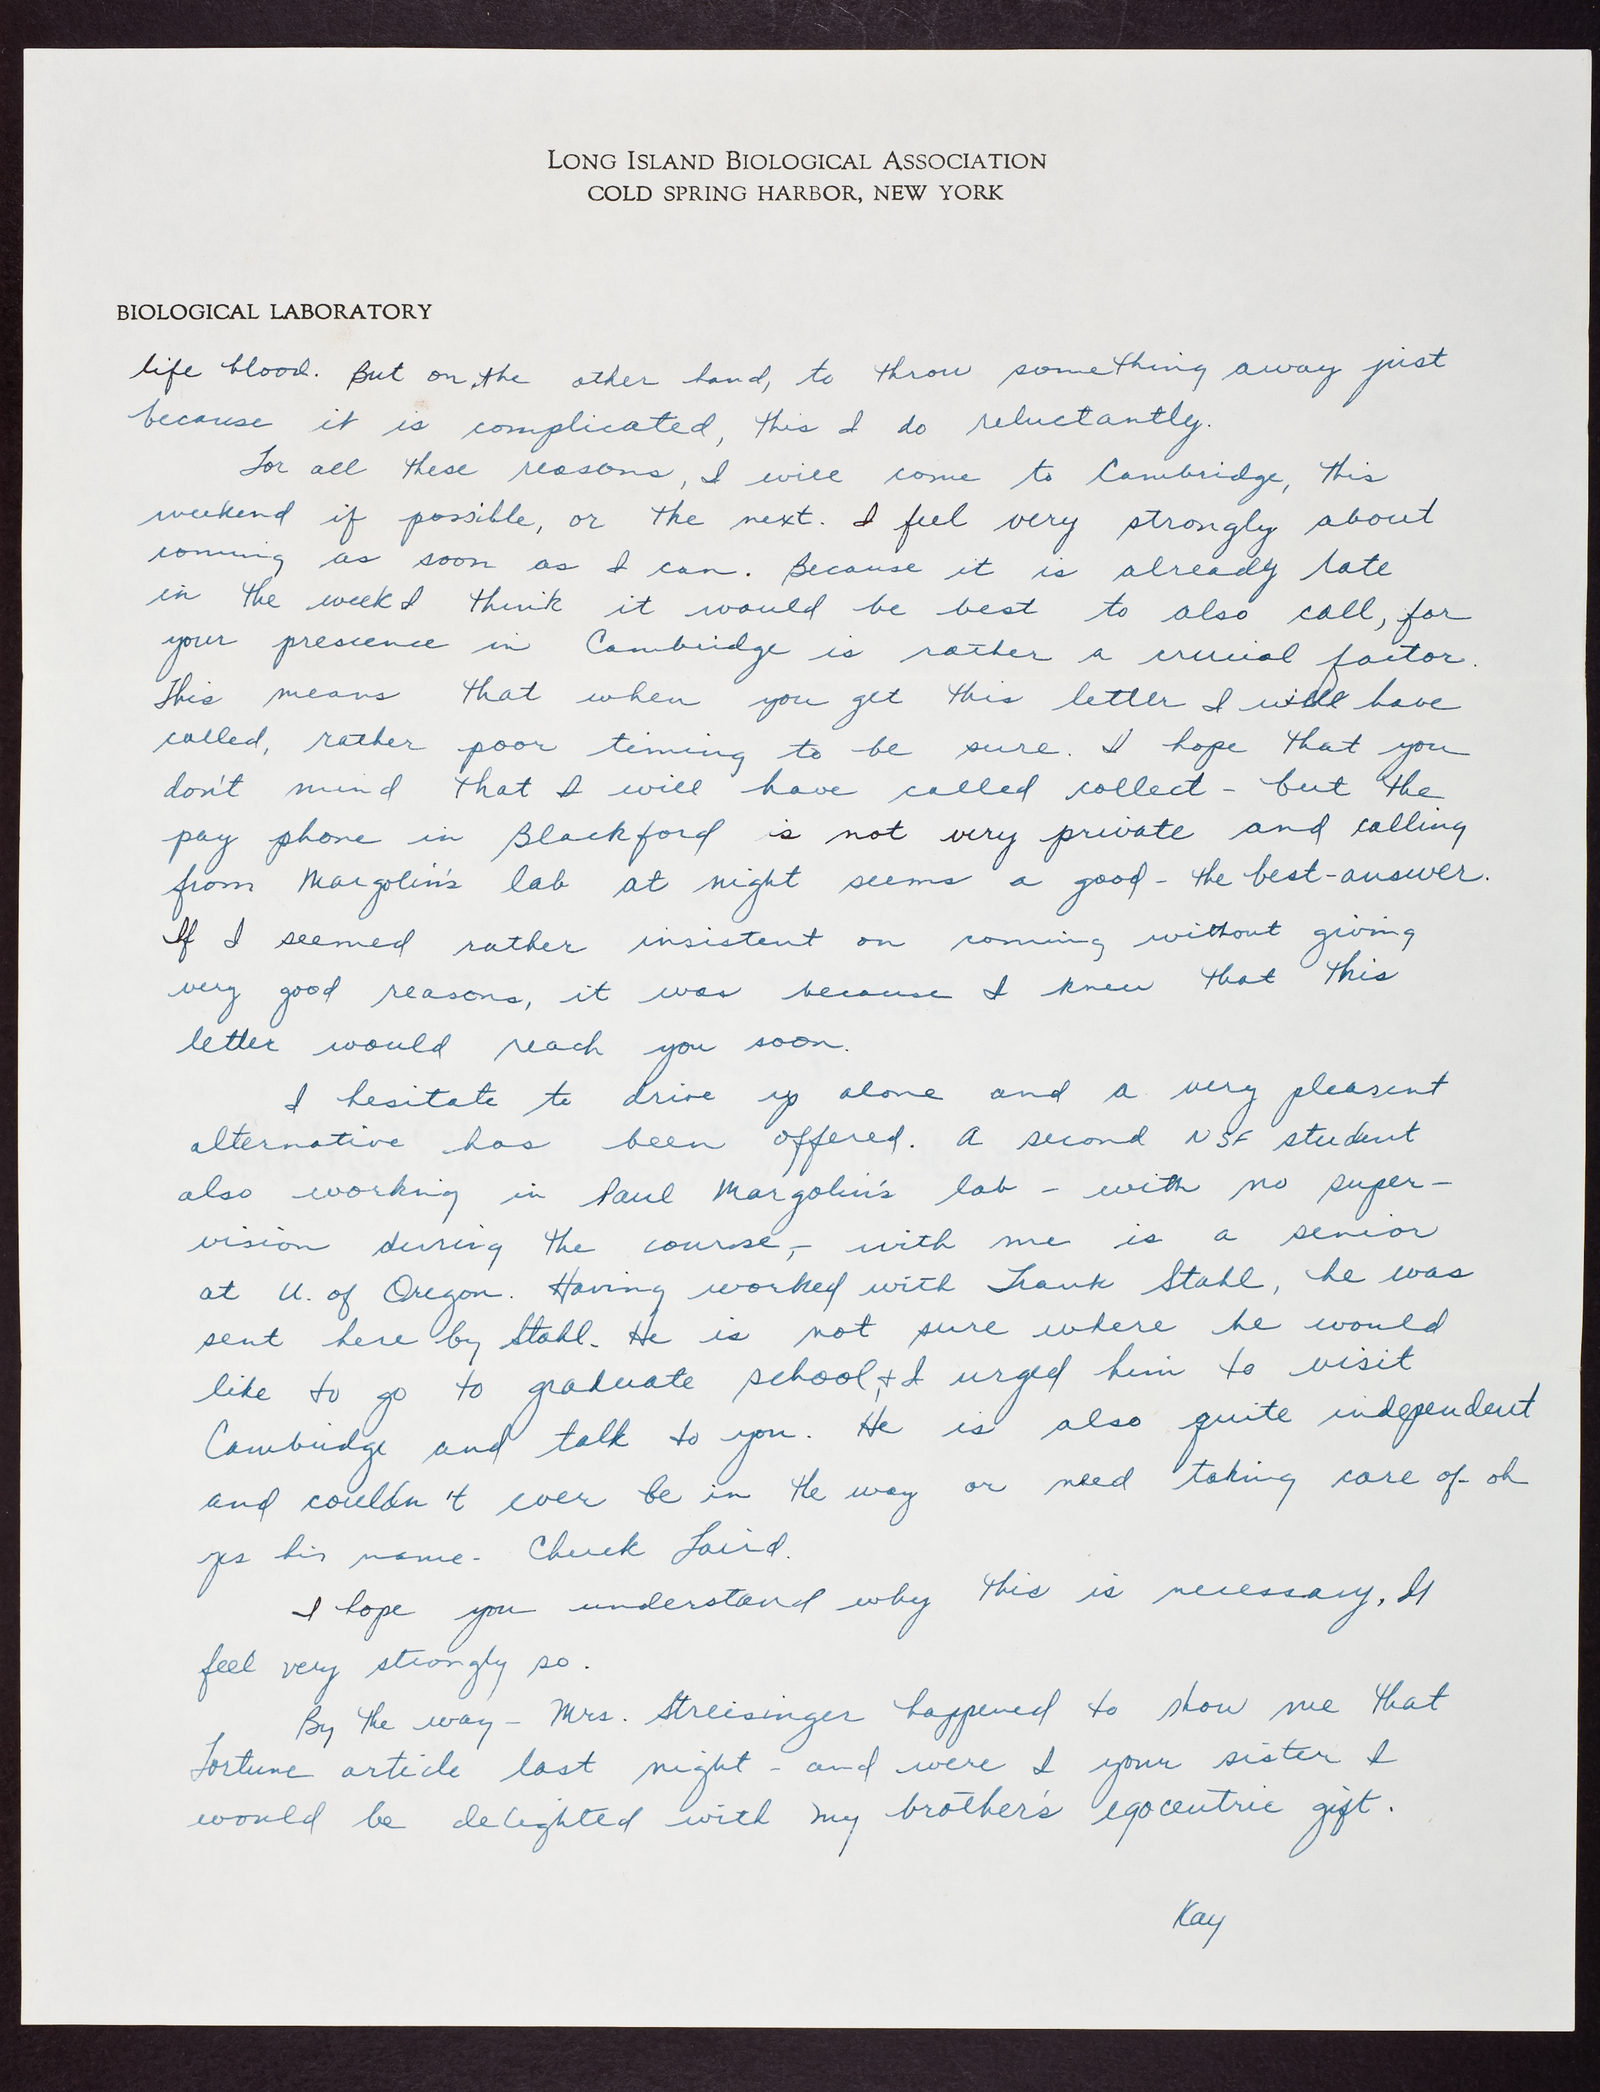 LONG ISLAND BIOLOGICAL ASSOCIATION
COLD SPRING HARBOR, NEW YORK
BIOLOGICAL LABORATORY
life blood. But on the other hand, to throw something away just
because it is complicated, this I do reluctantly.
For all these reasons, I will come to Cambridge, this
weekend if possible, or the next. I feel very strongly about
coming as soon as I can. Because it is already late
in the week I think it would be best to also call, for
your prescence in Cambridge is rather a crucial factor.
This means that when you get this letter I will have
called, rather poor timing to be sure. I hope that you
don't mind that I will have called collect - but the
pay phone in Blackford is not very private and calling
from Margolin's lab at night seems a good - the best - answer.
If I seemed rather insistent on coming without giving
very good reasons, it was because I knew that this
letter would reach you soon.
I hesitate to drive up alone and a very pleasent
alternative has been offered. A second NSF student
also working in Paul Margolin's lab - with no super-
vision during the course, - with me is a senior
at U. of Oregon. Having worked with Frank Stahl, he was
sent here by Stahl. He is not sure where he would
like to go to graduate school, & I urged him to visit
Cambridge and talk to you. He is also quite independent
and couldn't ever be in the way or need taking care of - oh
yes his name - Chuck Laird.
I hope you understand why this is necessary, I
feel very strongly so.
By the way - Mrs. Streisinger happened to show me that
Fortune article last night - and were I your sister I
would be delighted with my brother's egocentric gift.
Kay